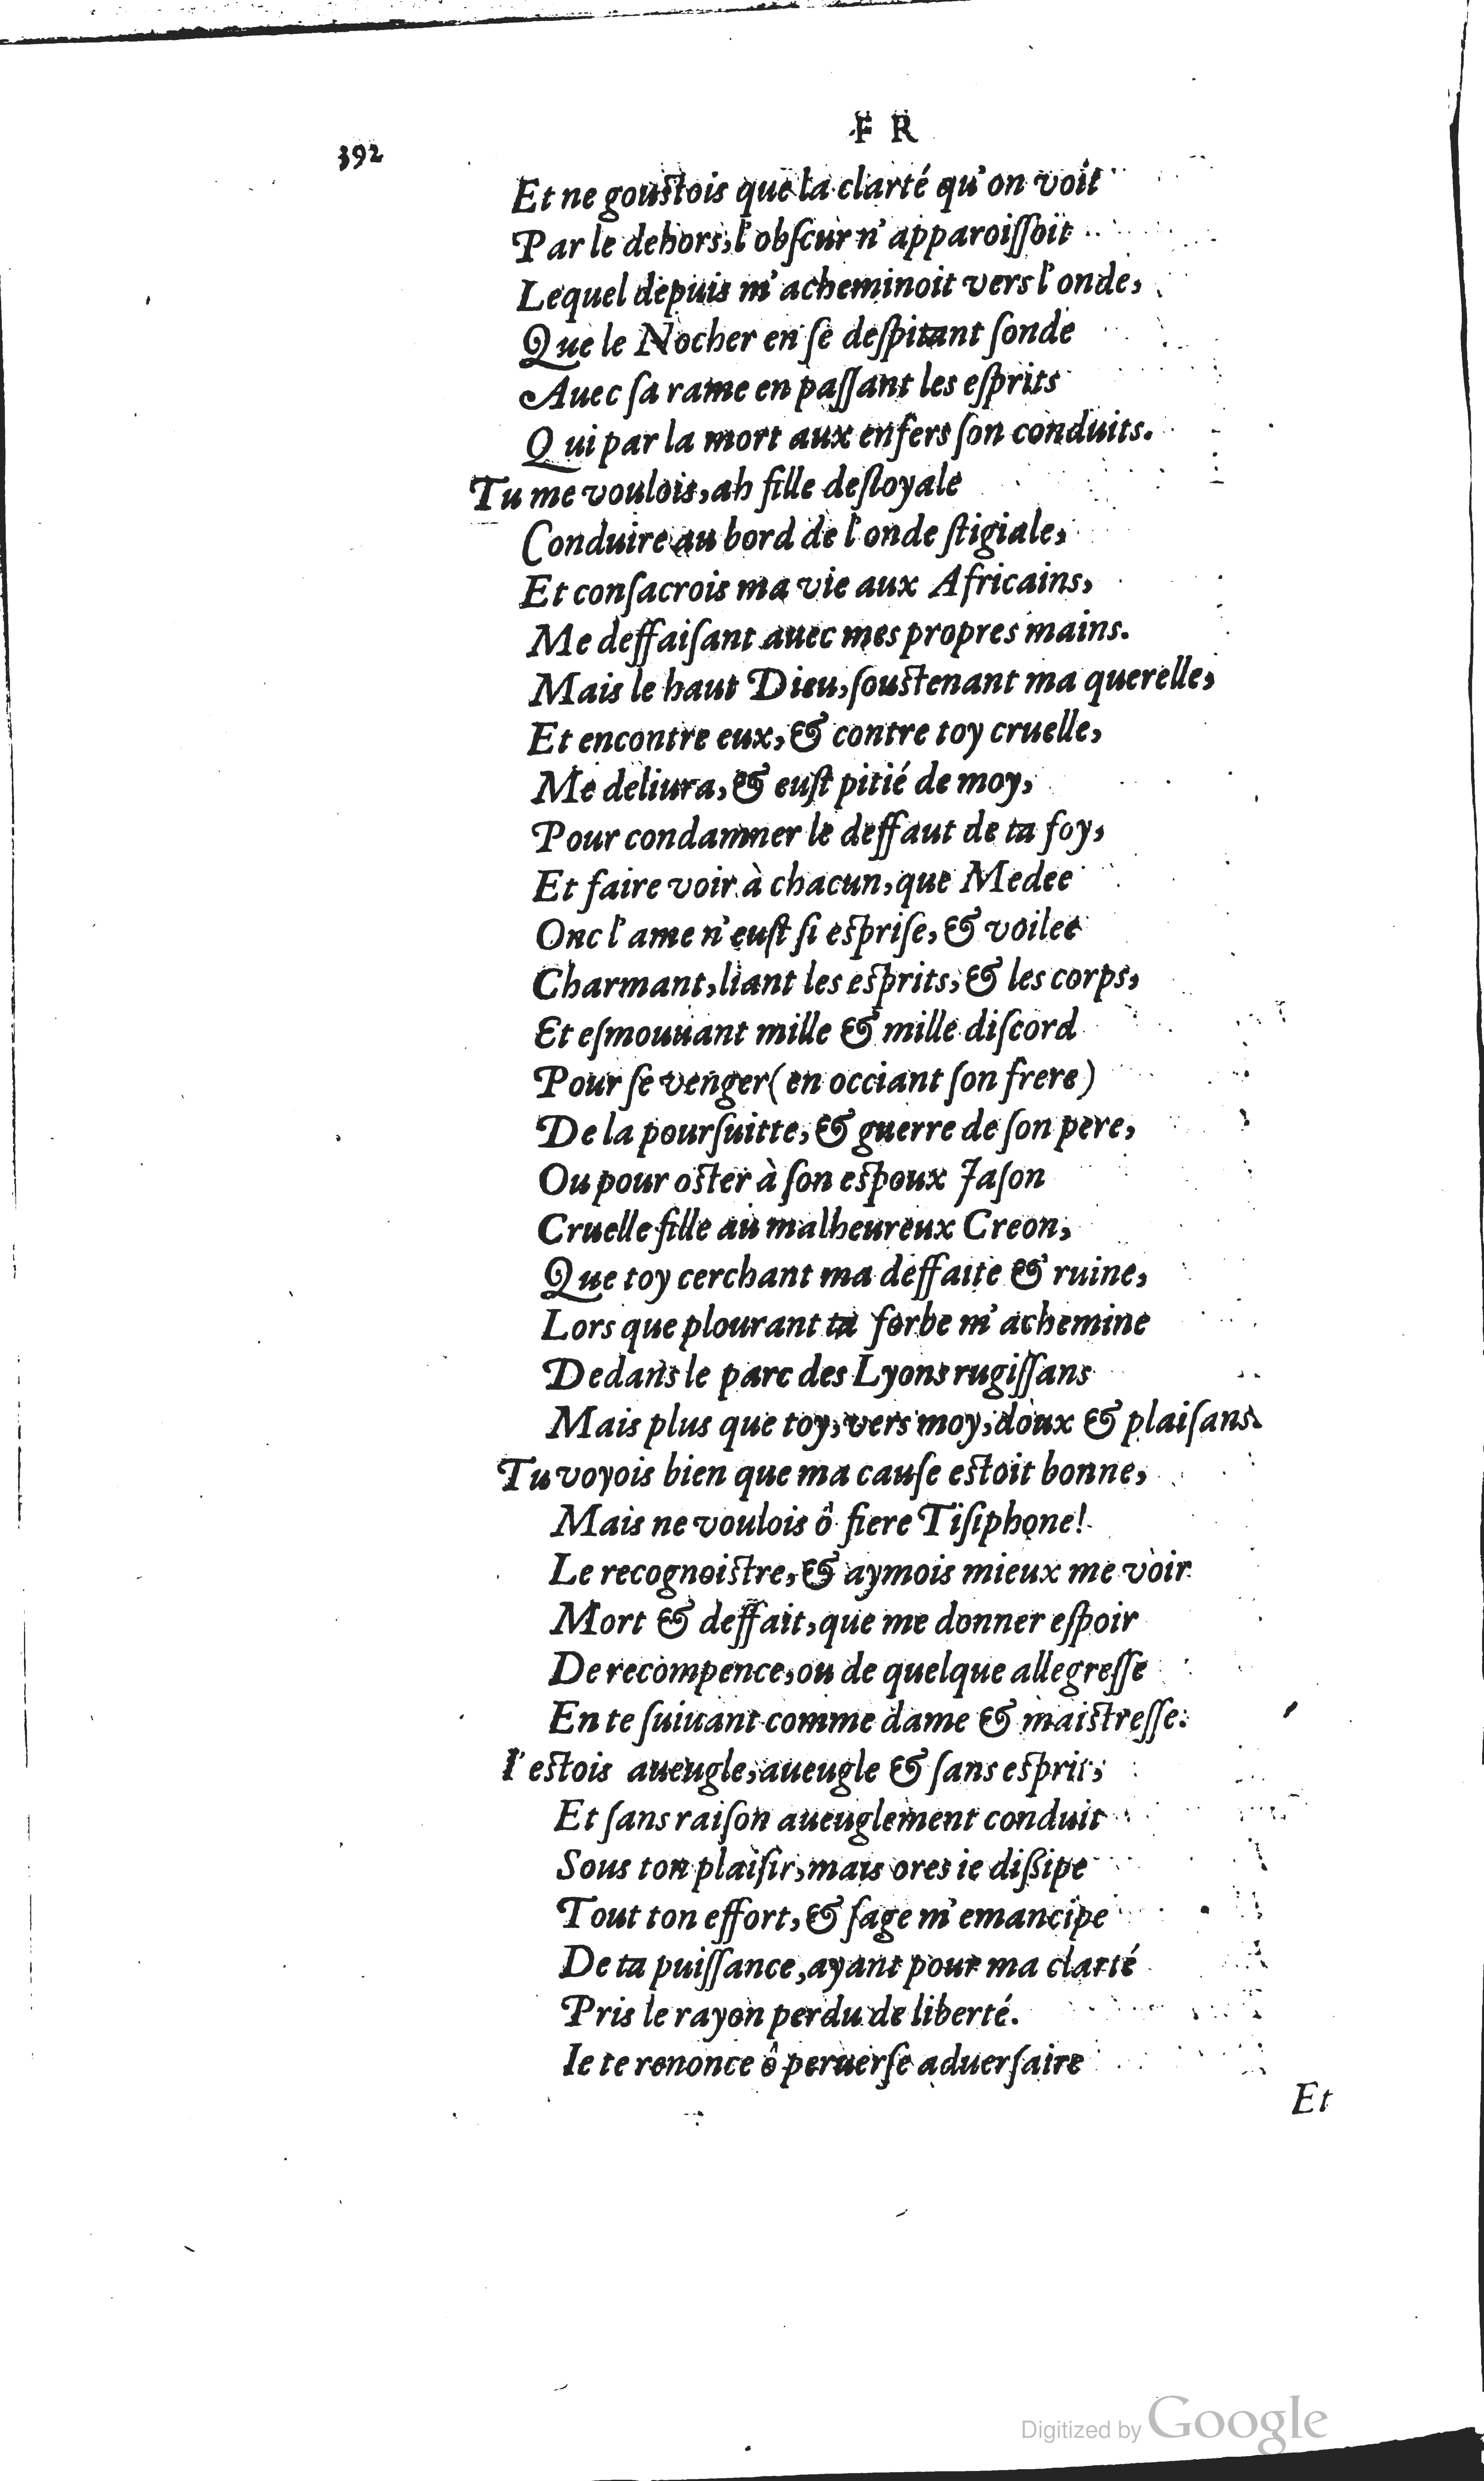 392
FR
Et ne gouſtois que la clarté qu'on voit
Par le dehors, l'obſcur n'apparoiſſoit
Lequel depuis m'acheminoit vers l'onde,
Que le Nocher en ſe deſpitant ſonde
Auec ſa rame en paſſant les eſprits
Qui par la mort aux enfers ſon conduits.
Tu me voulois, ah fille deſloyale
Conduire au bord de l'onde ſtigiale,
Et conſacrois ma vie aux Africains,
Me deffaiſant auec mes propres mains.
Mais le haut Dieu, ſouſtenant ma querelle,
Et encontre eux, & contre toy cruelle,
Me deliura, & euſt pitié de moy,
Pour condamner le deffaut de ta foy,
Et faire voir à chacun, que Medee
Onc l'ame n'euſt ſi eſpriſe, & voilee
Charmant, liant les eſprits, & les corps,
Et eſmouuant mille & mille diſcord
Pour ſe venger (en occiant ſon frere)
De la pourſuitte, & guerre de ſon pere,
Ou pour oſter à ſon eſpoux Jaſon
Cruelle fille au malheureux Creon,
Que toy cerchant ma deffaite & ruine,
Lors que plourant ta forbe m'achemine
Dedans le parc des Lyons rugiſſans
Mais plus que toy, vers moy, doux & plaiſans.
Tu voyois bien que ma cauſe eſtoit bonne,
Mais ne voulois ô fiere Tiſiphone!
Le recognoiſtre, & aymois mieux me voir
Mort & deffait, que me donner eſpoir
De recompence, ou de quelque allegreſſe
En te ſuiuant comme dame & maiſtreſſe.
I'eſtois aueugle, aueugle & ſans eſprit,
Et ſans raiſon aueuglement conduit
Sous ton plaiſir, mais ores ie diſſipe
Tout ton effort, & ſage m'emancipe
De ta puiſſance, ayant pour ma clarté
Pris le rayon perdu de liberté.
Ie te renonce ô peruerſe aduerſaire
Et
Digitized by Google